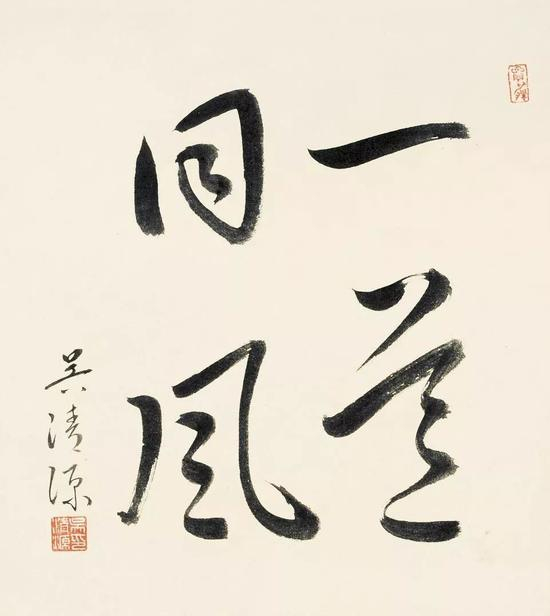 一道
同風
吳清源